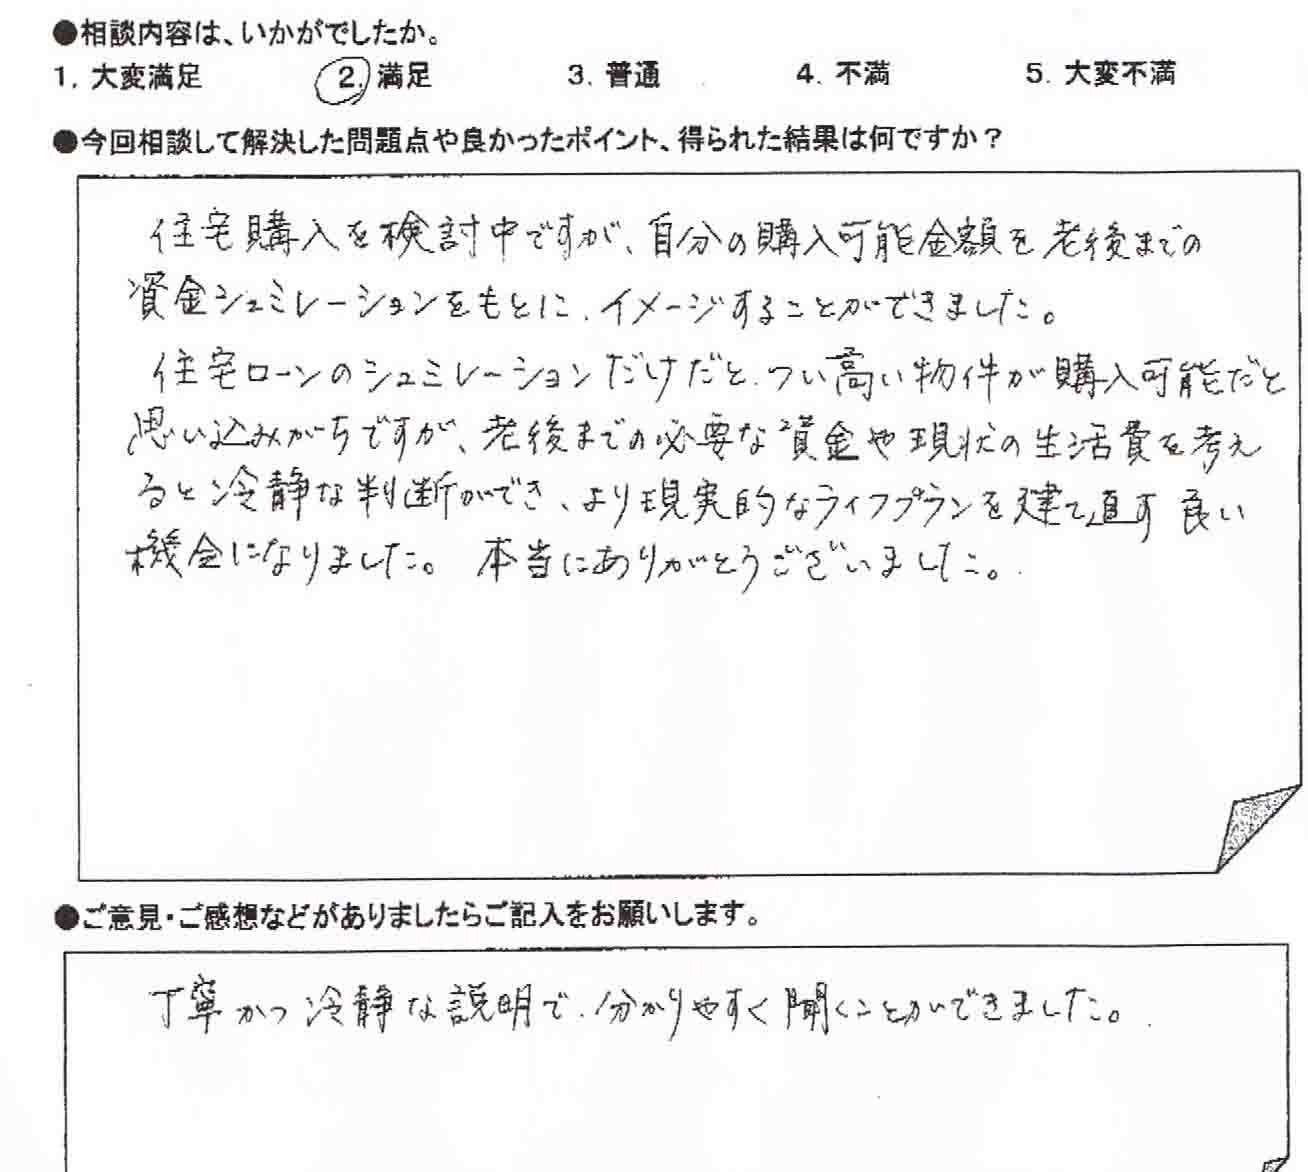 ●相談内容は、いかがでしたか。
1. 大変満足 2. 満足 3. 普通 4. 不満 5. 大変不満
●今回相談して解決した問題点や良かったポイント、得られた結果は何ですか？
住宅購入を検討中ですが、自分の購入可能金額を老後までの
資金シュミレーションをもとに、イメージすることができました。
住宅ローンのシュミレーションだけだと、つい高い物件が購入可能だと
思い込みがちですが、老後までの必要な資金や現状の生活費を考え
ると冷静な判断ができ、より現実的なライフプランを建て直す良い
機会になりました。本当にありがとうございました。
●ご意見・ご感想などがありましたらご記入をお願いします。
丁寧かつ冷静な説明で、分かりやすく聞くことができました。